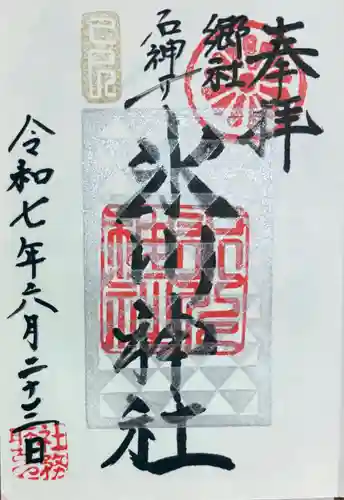 奉拝
郷社
石神井
氷川神社
令和七年六月二十二日
氷川神社
社務